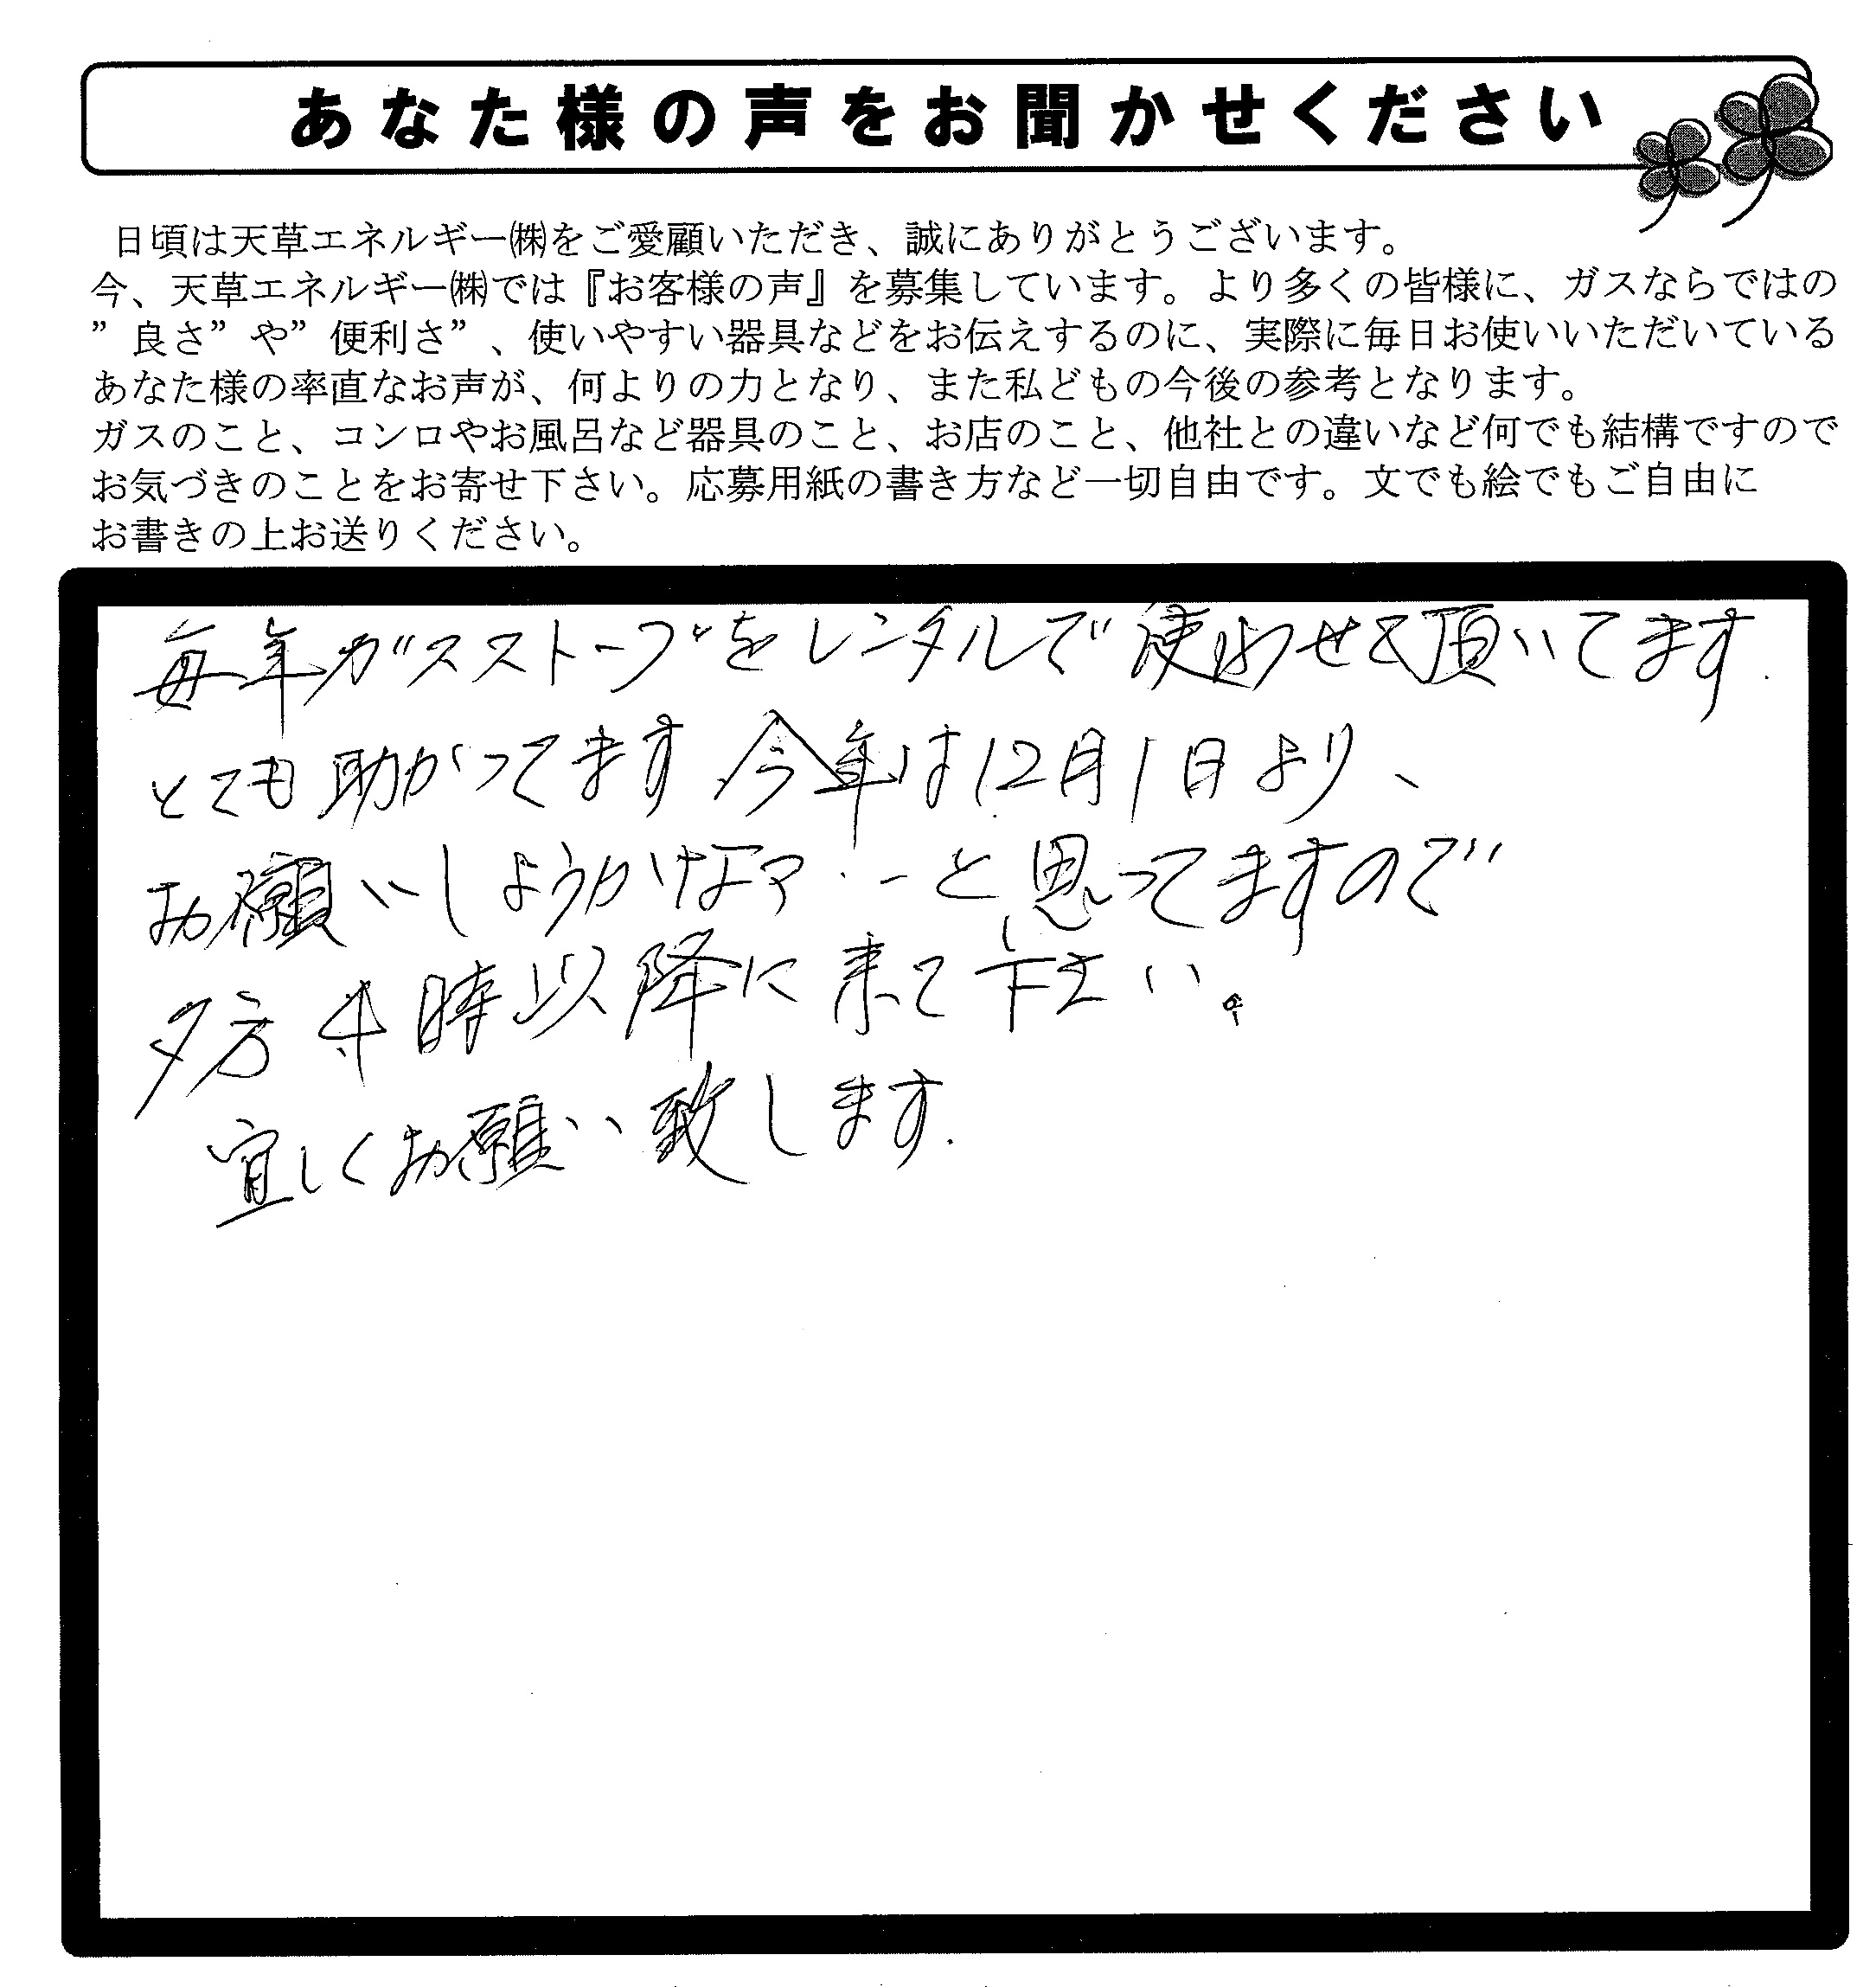 あなた様の声をお聞かせください
日頃は天草エネルギー㈱をご愛顧いただき、誠にありがとうございます。
今、天草エネルギー㈱では『お客様の声』を募集しています。より多くの皆様に、ガスならではの
”良さ”や”便利さ”、使いやすい器具などをお伝えするのに、実際に毎日お使いいただいている
あなた様の率直なお声が、何よりの力となり、また私どもの今後の参考となります。
ガスのこと、コンロやお風呂など器具のこと、お店のこと、他社との違いなど何でも結構ですので
お気づきのことをお寄せ下さい。応募用紙の書き方など一切自由です。文でも絵でもご自由に
お書きの上お送りください。
毎年ガスストーブをレンタルで使わせて頂いてます.
とても助かってます 今年は12月1日より、
お願いしようかなァ‥と思ってますので
夕方4時以降に来て下さい。
宜しくお願い致します.